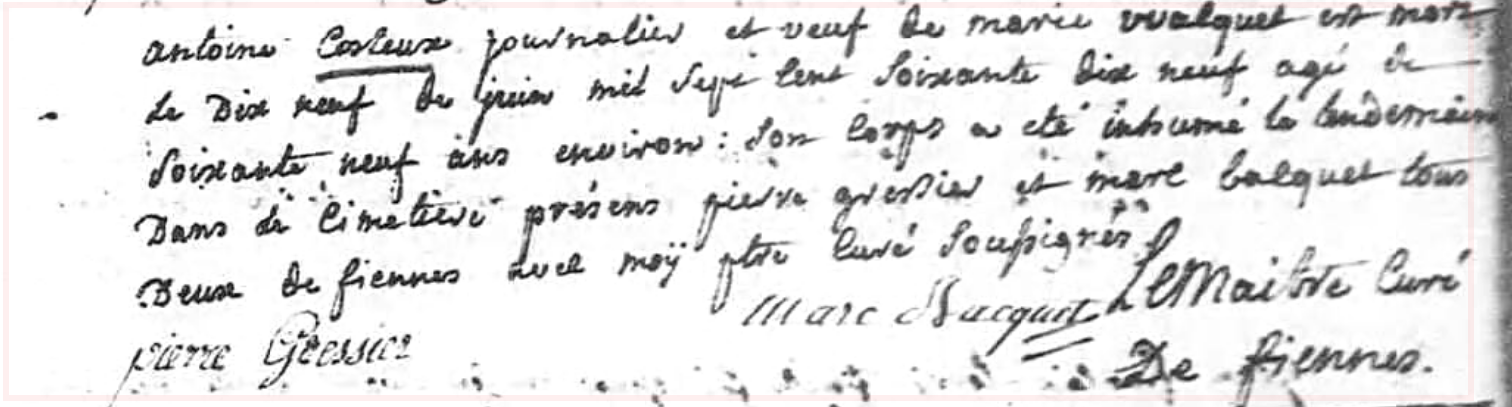 antoine Costeux journalier et veuf de marie vvalquet est mort
le Dix neuf de juin mil sept cent soixante dix neuf agé de
soixante neuf ans environ : son corps a eté inhumé le lendemain
Dans le Cimetiere présens pierre gressier et marc bacquet tous
Deux de fiennes avec moÿ ptre Curé soussignés
Marc Bacquet LeMaitre Curé
pierre Gressier
De fiennes.